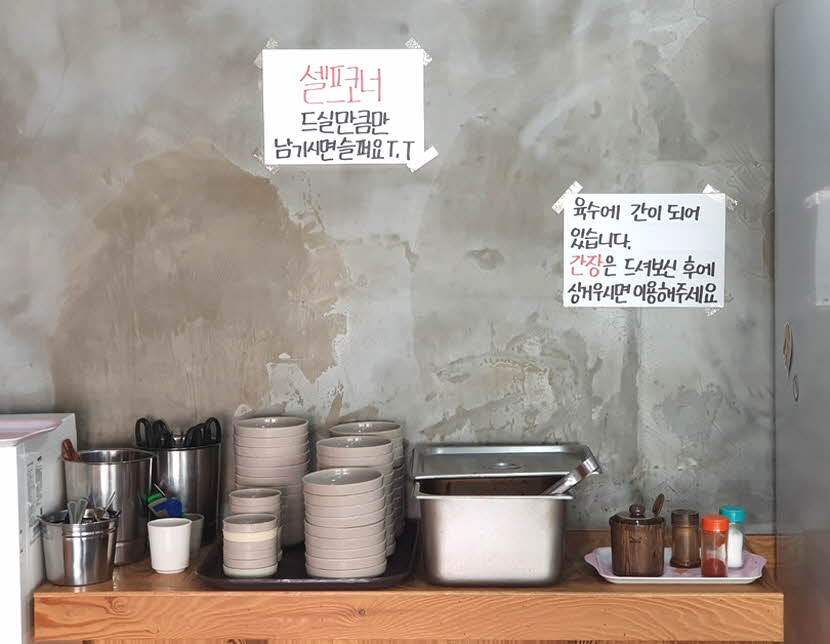 셀프코너
드실만큼만
남기시면슬퍼요T.T
육수에 간이 되어
있습니다.
간장은 드셔보신 후에
싱거우시면이용해주세요